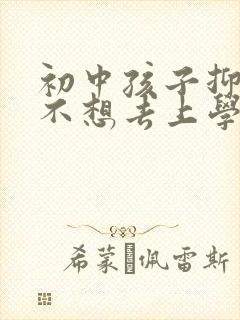 初中孩子抑
不想去上學
希蒙·佩雷斯